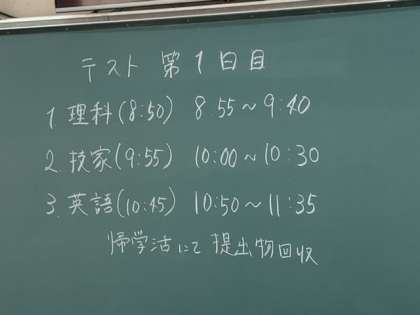 テスト 第1日目
1. 理科(8:50) 8 55～9:40
2. 技家(9:55) 10:00～10:30
3. 英語(10:45) 10:50～11:35
帰学活にて 提出物回収